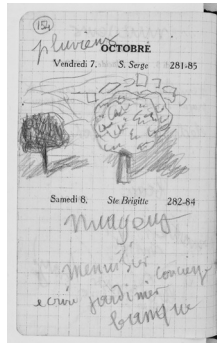 154
pluvieux
OCTOBRE
Vendredi 7. S. Serge 281-85
Samedi 8. Ste Brigitte 282-84
nuageux
menuisier concierge
ecrire jardinier
banque